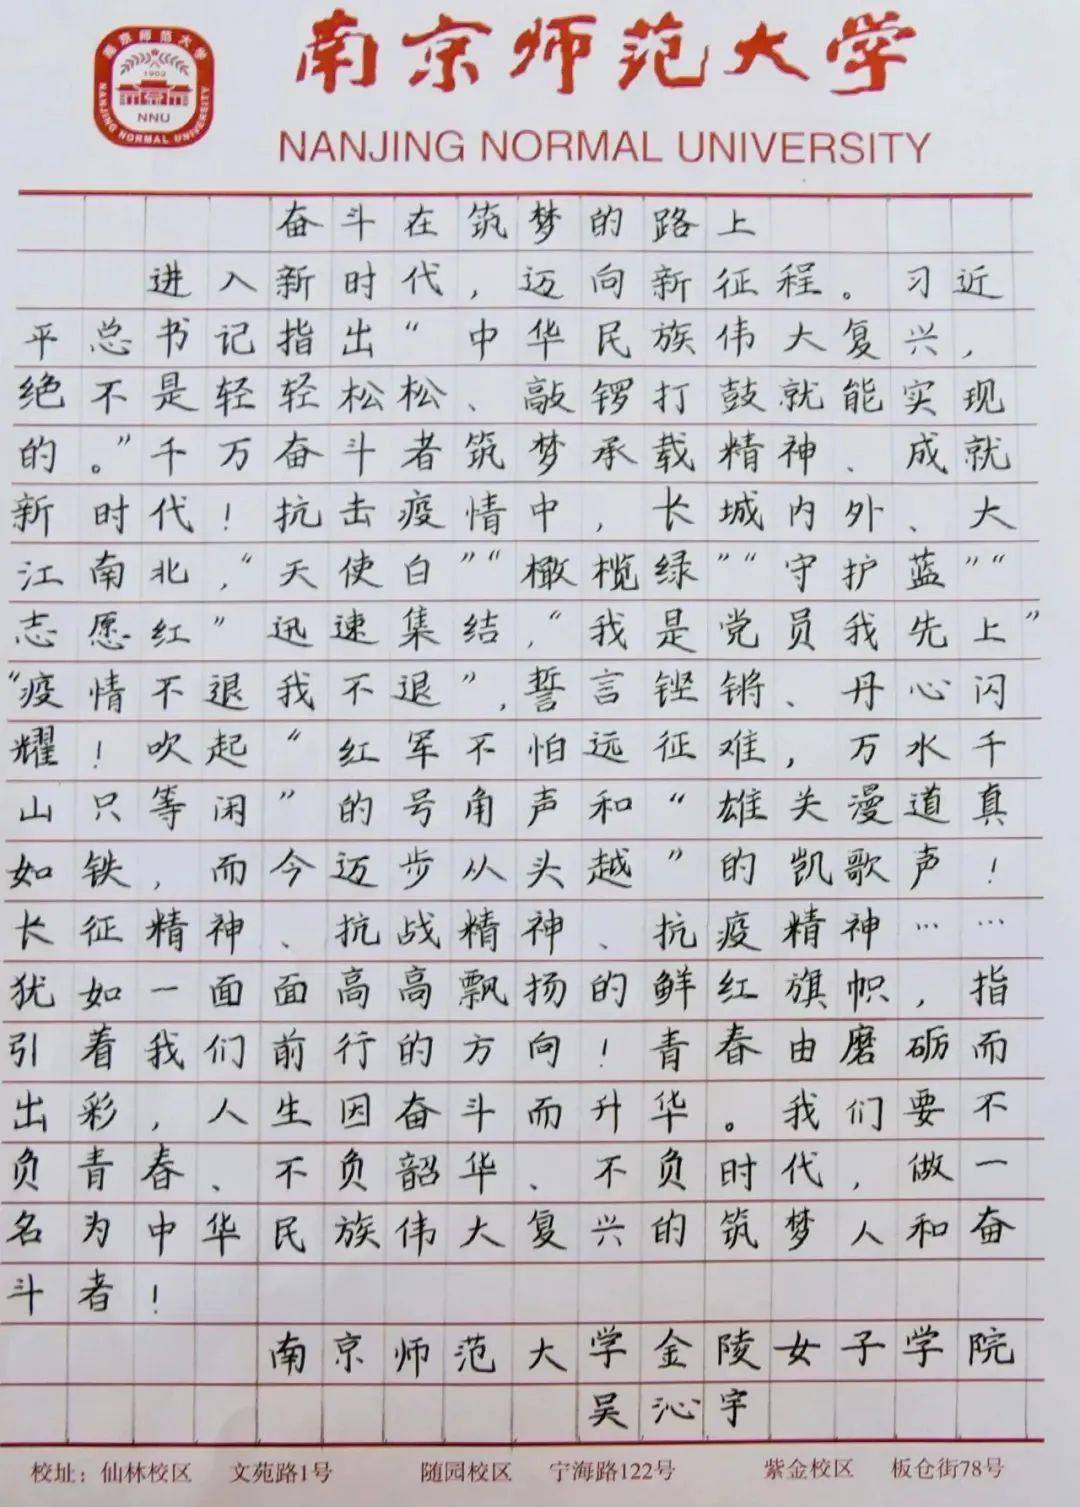 南京师范大学
NANJING NORMAL UNIVERSITY
南京师范大学
1902
NNU
NANJING NORMAL UNIVERSITY
奋斗在筑梦的路上
进入新时代，迈向新征程。习近
平总书记指出“中华民族伟大复兴，
绝不是轻轻松松、敲锣打鼓就能实现
的。”千万奋斗者筑梦承载精神、成就
新时代！抗击疫情中，长城内外、大
江南北，“天使白”“橄榄绿”“守护蓝”“
志愿红”迅速集结，“我是党员我先上”
“疫情不退我不退”，誓言铿锵、丹心闪
耀！吹起“红军不怕远征难，万水千
山只等闲”的号角声和“雄关漫道真
如铁，而今迈步从头越”的凯歌声！
长征精神、抗战精神、抗疫精神……
犹如一面面高高飘扬的鲜红旗帜，指
引着我们前行的方向！青春由磨砺而
出彩，人生因奋斗而升华。我们要不
负青春、不负韶华、不负时代，做一
名为中华民族伟大复兴的筑梦人和奋
斗者！
南京师范大学金陵女子学院
吴沁宇
校址：仙林校区 文苑路1号 随园校区 宁海路122号 紫金校区 板仓街78号